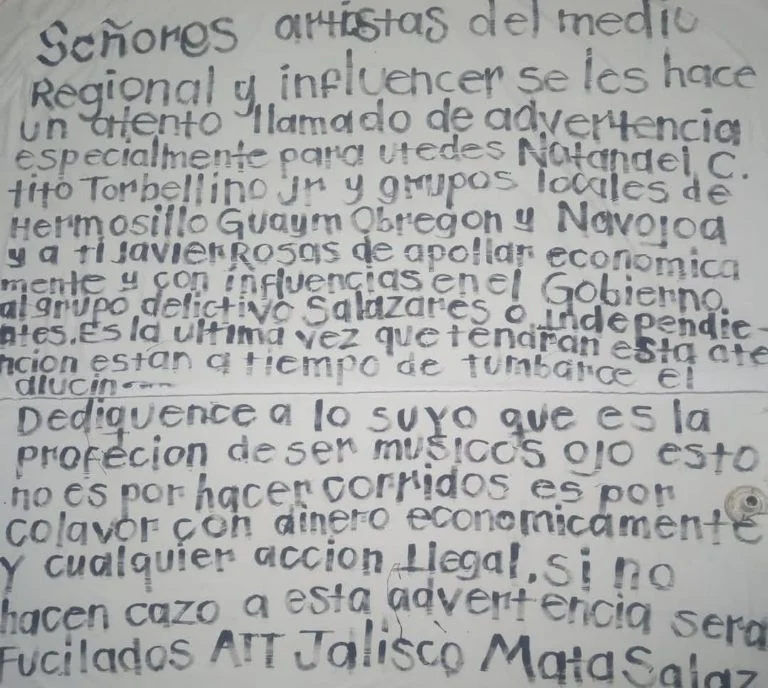 Señores artistas del medio
Regional y influencer se les hace
un atento llamado de advertencia
especialmente para utedes Natanael C.
tito Torbellino Jr y grupos locales de
Hermosillo Guaym Obregon y Navojoa
y a ti Javier Rosas de apollar economica
mente y con influencias en el Gobierno.
al grupo delictivo Salazares o Independie-
ntes. Es la ultima vez que tendran esta ate
ncion estan a tiempo de tumbarce el
alucin
Dediquence a lo suyo que es la
profecion de ser musicos ojo esto
no es por hacer corridos es por
colavor con dinero economicamente
y cualquier accion Ilegal, si no
hacen cazo a esta advertencia sera
Fucilados ATT Jalisco Mata Salaz